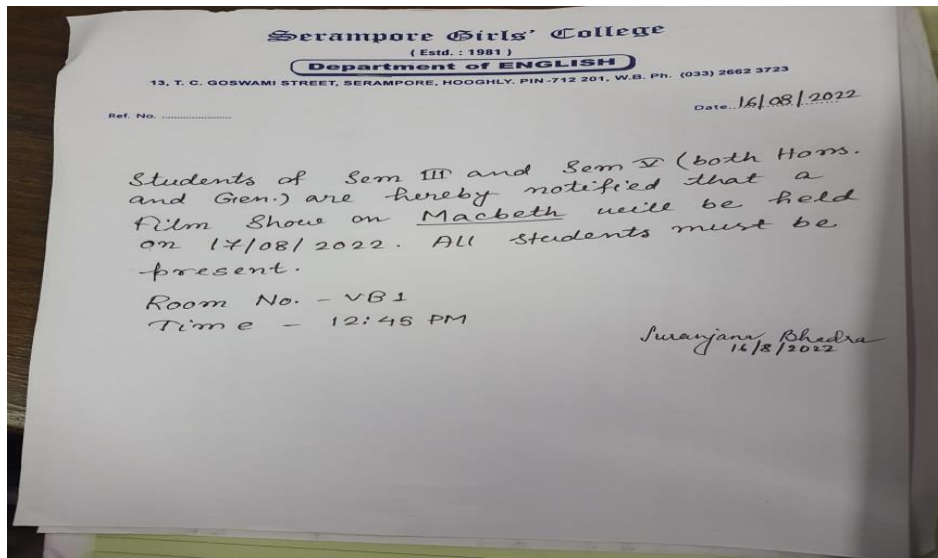 Serampore Girls' College
( Estd. : 1981 )
Department of ENGLISH
13, T. C. GOSWAMI STREET, SERAMPORE, HOOGHLY. PIN-712 201, W.B. Ph. (033) 2662 3723
Ref. No. ........................
Date..16/08/2022
Students of Sem III and Sem V (both Hons.
and Gen.) are hereby notified that a
Film Show on Macbeth will be held
on 17/08/2022. All students must be
present.
Room No. - VB1
Time - 12:45 PM
Suranjana Bhadra
16/8/2022